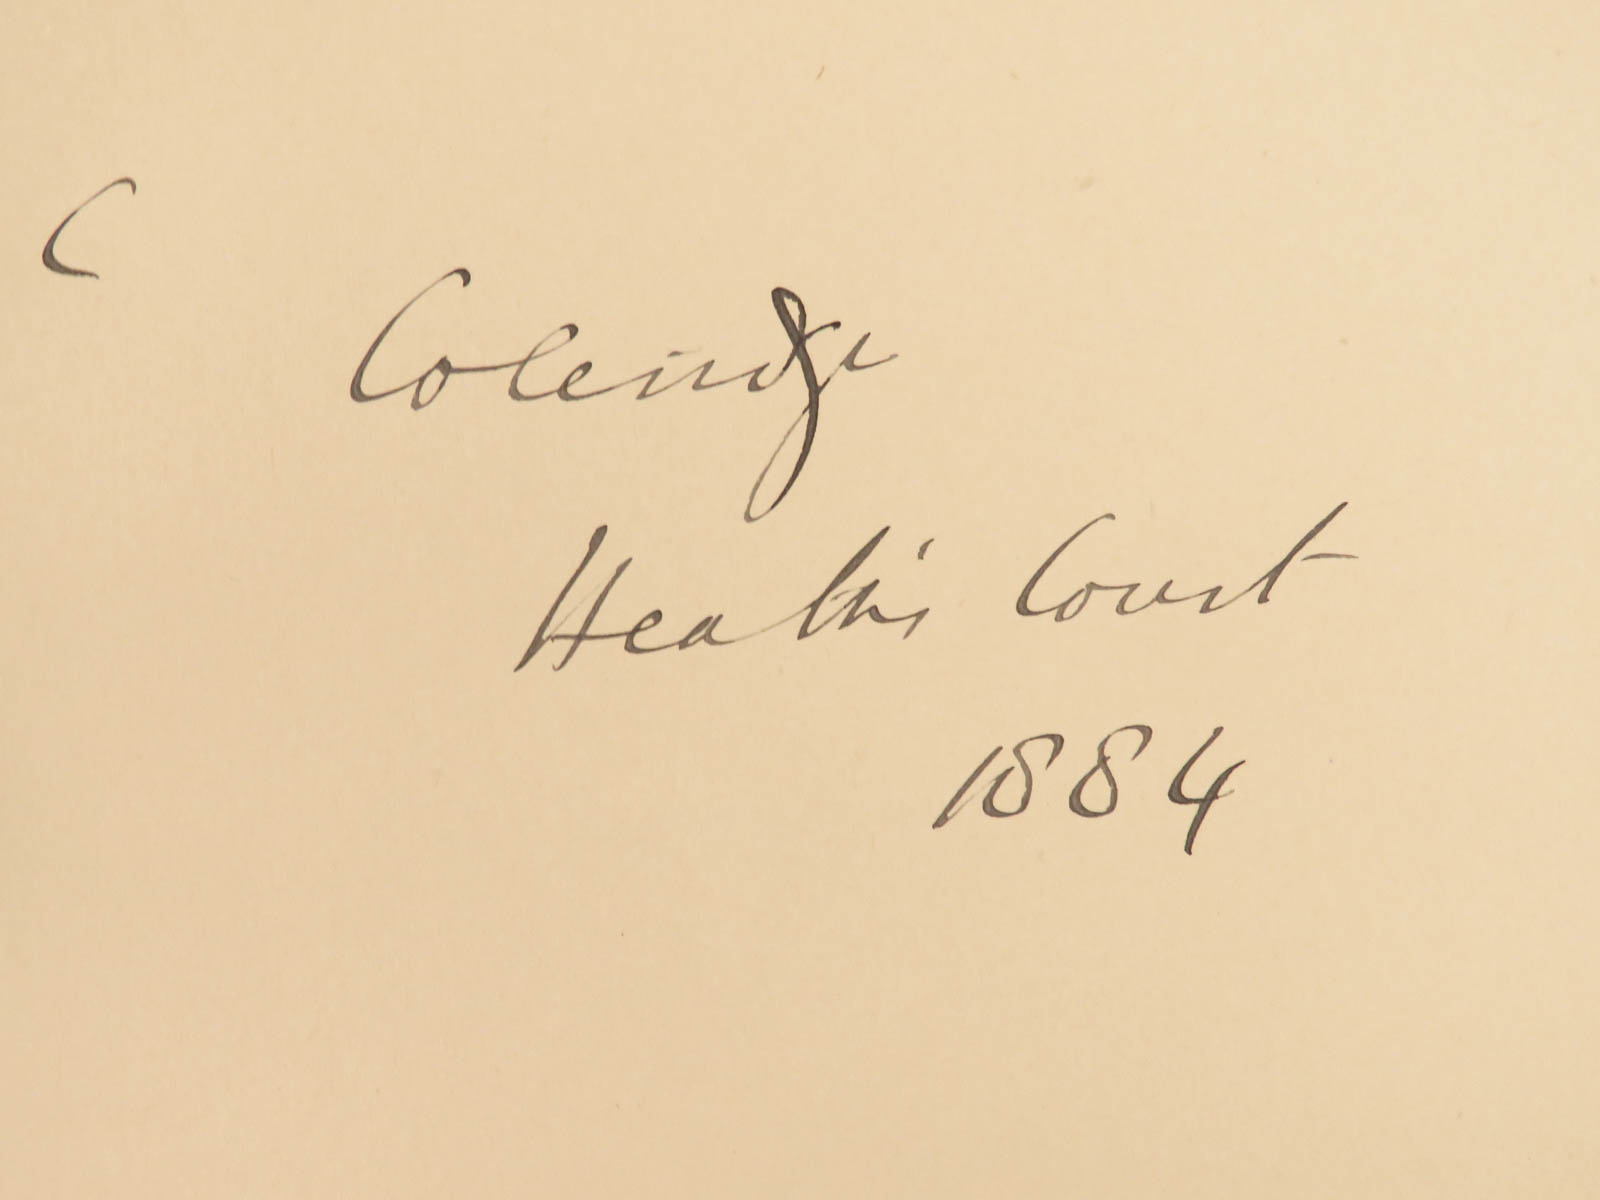 C
Coleridge
Heath's Court
1884